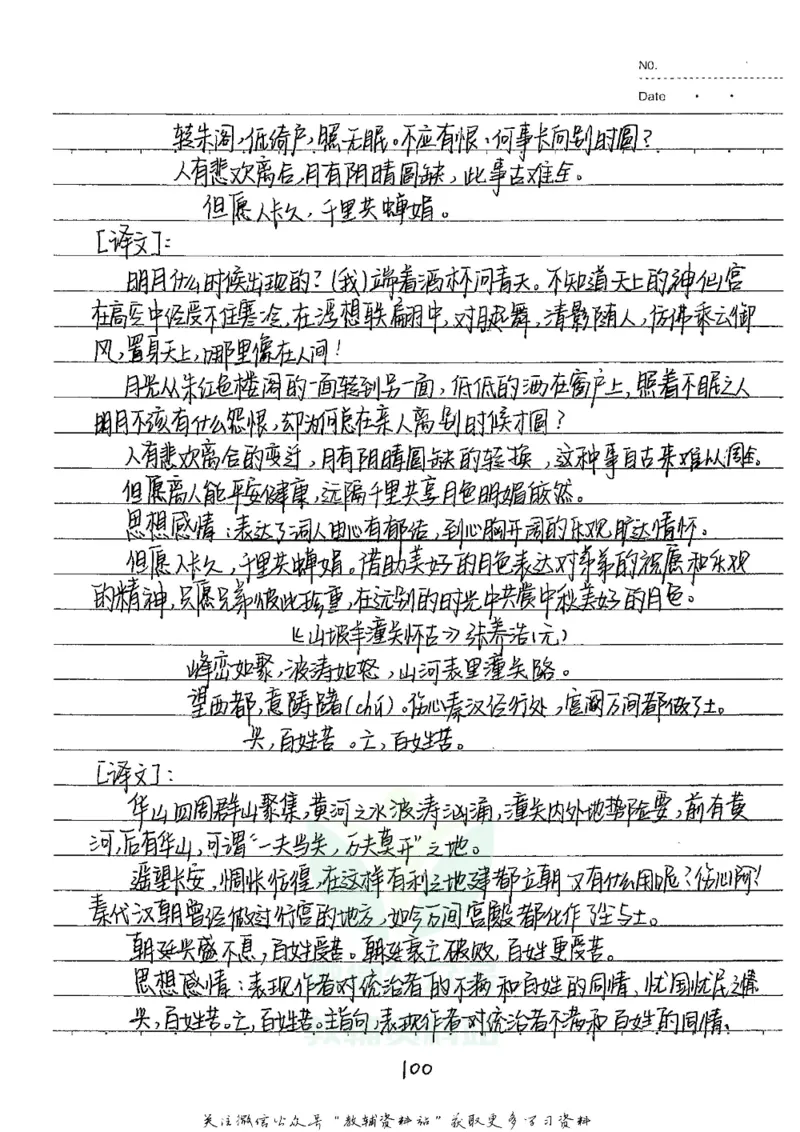 NO.
Date
转朱阁,低绮户,照无眠。不应有恨,何事长向别时圆?
人有悲欢离合,月有阴晴圆缺,此事古难全。
但愿人长久,千里共婵娟。
[译文]:
明月什么时候出现的?(我)端着酒杯问青天。不知道天上的神仙宫
在高空中经受不住寒冷,在浮想联翩中,对月起舞,清影随人,仿佛乘云御
风,置身天上,哪里像在人间!
月光从朱红色楼阁的一面转到另一面,低低的洒在窗户上,照着不眠之人
明月不该有什么怨恨,却为何总在亲人离别时候才圆?
人有悲欢离合的变迁,月有阴晴圆缺的转换,这种事自古来难以周全。
但愿离人能平安健康,远隔千里共享月色明媚皎然。
思想感情:表达了词人由心有郁结,到心胸开阔的乐观旷达情怀。
但愿人长久,千里共婵娟。借助美好的月色表达对弟弟的祝愿和乐观
的精神,只愿兄弟彼此珍重,在远别的时光中共赏中秋美好的月色。
《山坡羊潼关怀古》张养浩(元)
峰峦如聚,波涛如怒,山河表里潼关路。
望西都,意踌躇(chú)。伤心秦汉经行处,宫阙万间都做了土。
兴,百姓苦。亡,百姓苦。
[译文]:
华山四周群山聚集,黄河之水波涛汹涌,潼关内外地势险要,前有黄
河,后有华山,可谓“一夫当关,万夫莫开”之地。
遥望长安,惆怅彷徨,在这样有利之地建都立朝又有什么用呢?伤心啊!
秦代汉朝曾经做过行宫的地方,如今万间宫殿都化作了尘与土。
朝廷兴盛不息,百姓受苦。朝廷衰亡破败,百姓更受苦。
思想感情:表现作者对统治者的不满和百姓的同情、忧国忧民之情
兴,百姓苦。亡,百姓苦。主旨句,表现作者对统治者不满和百姓的同情。
100
关注微信公众号“教辅资料站”获取更多学习资料